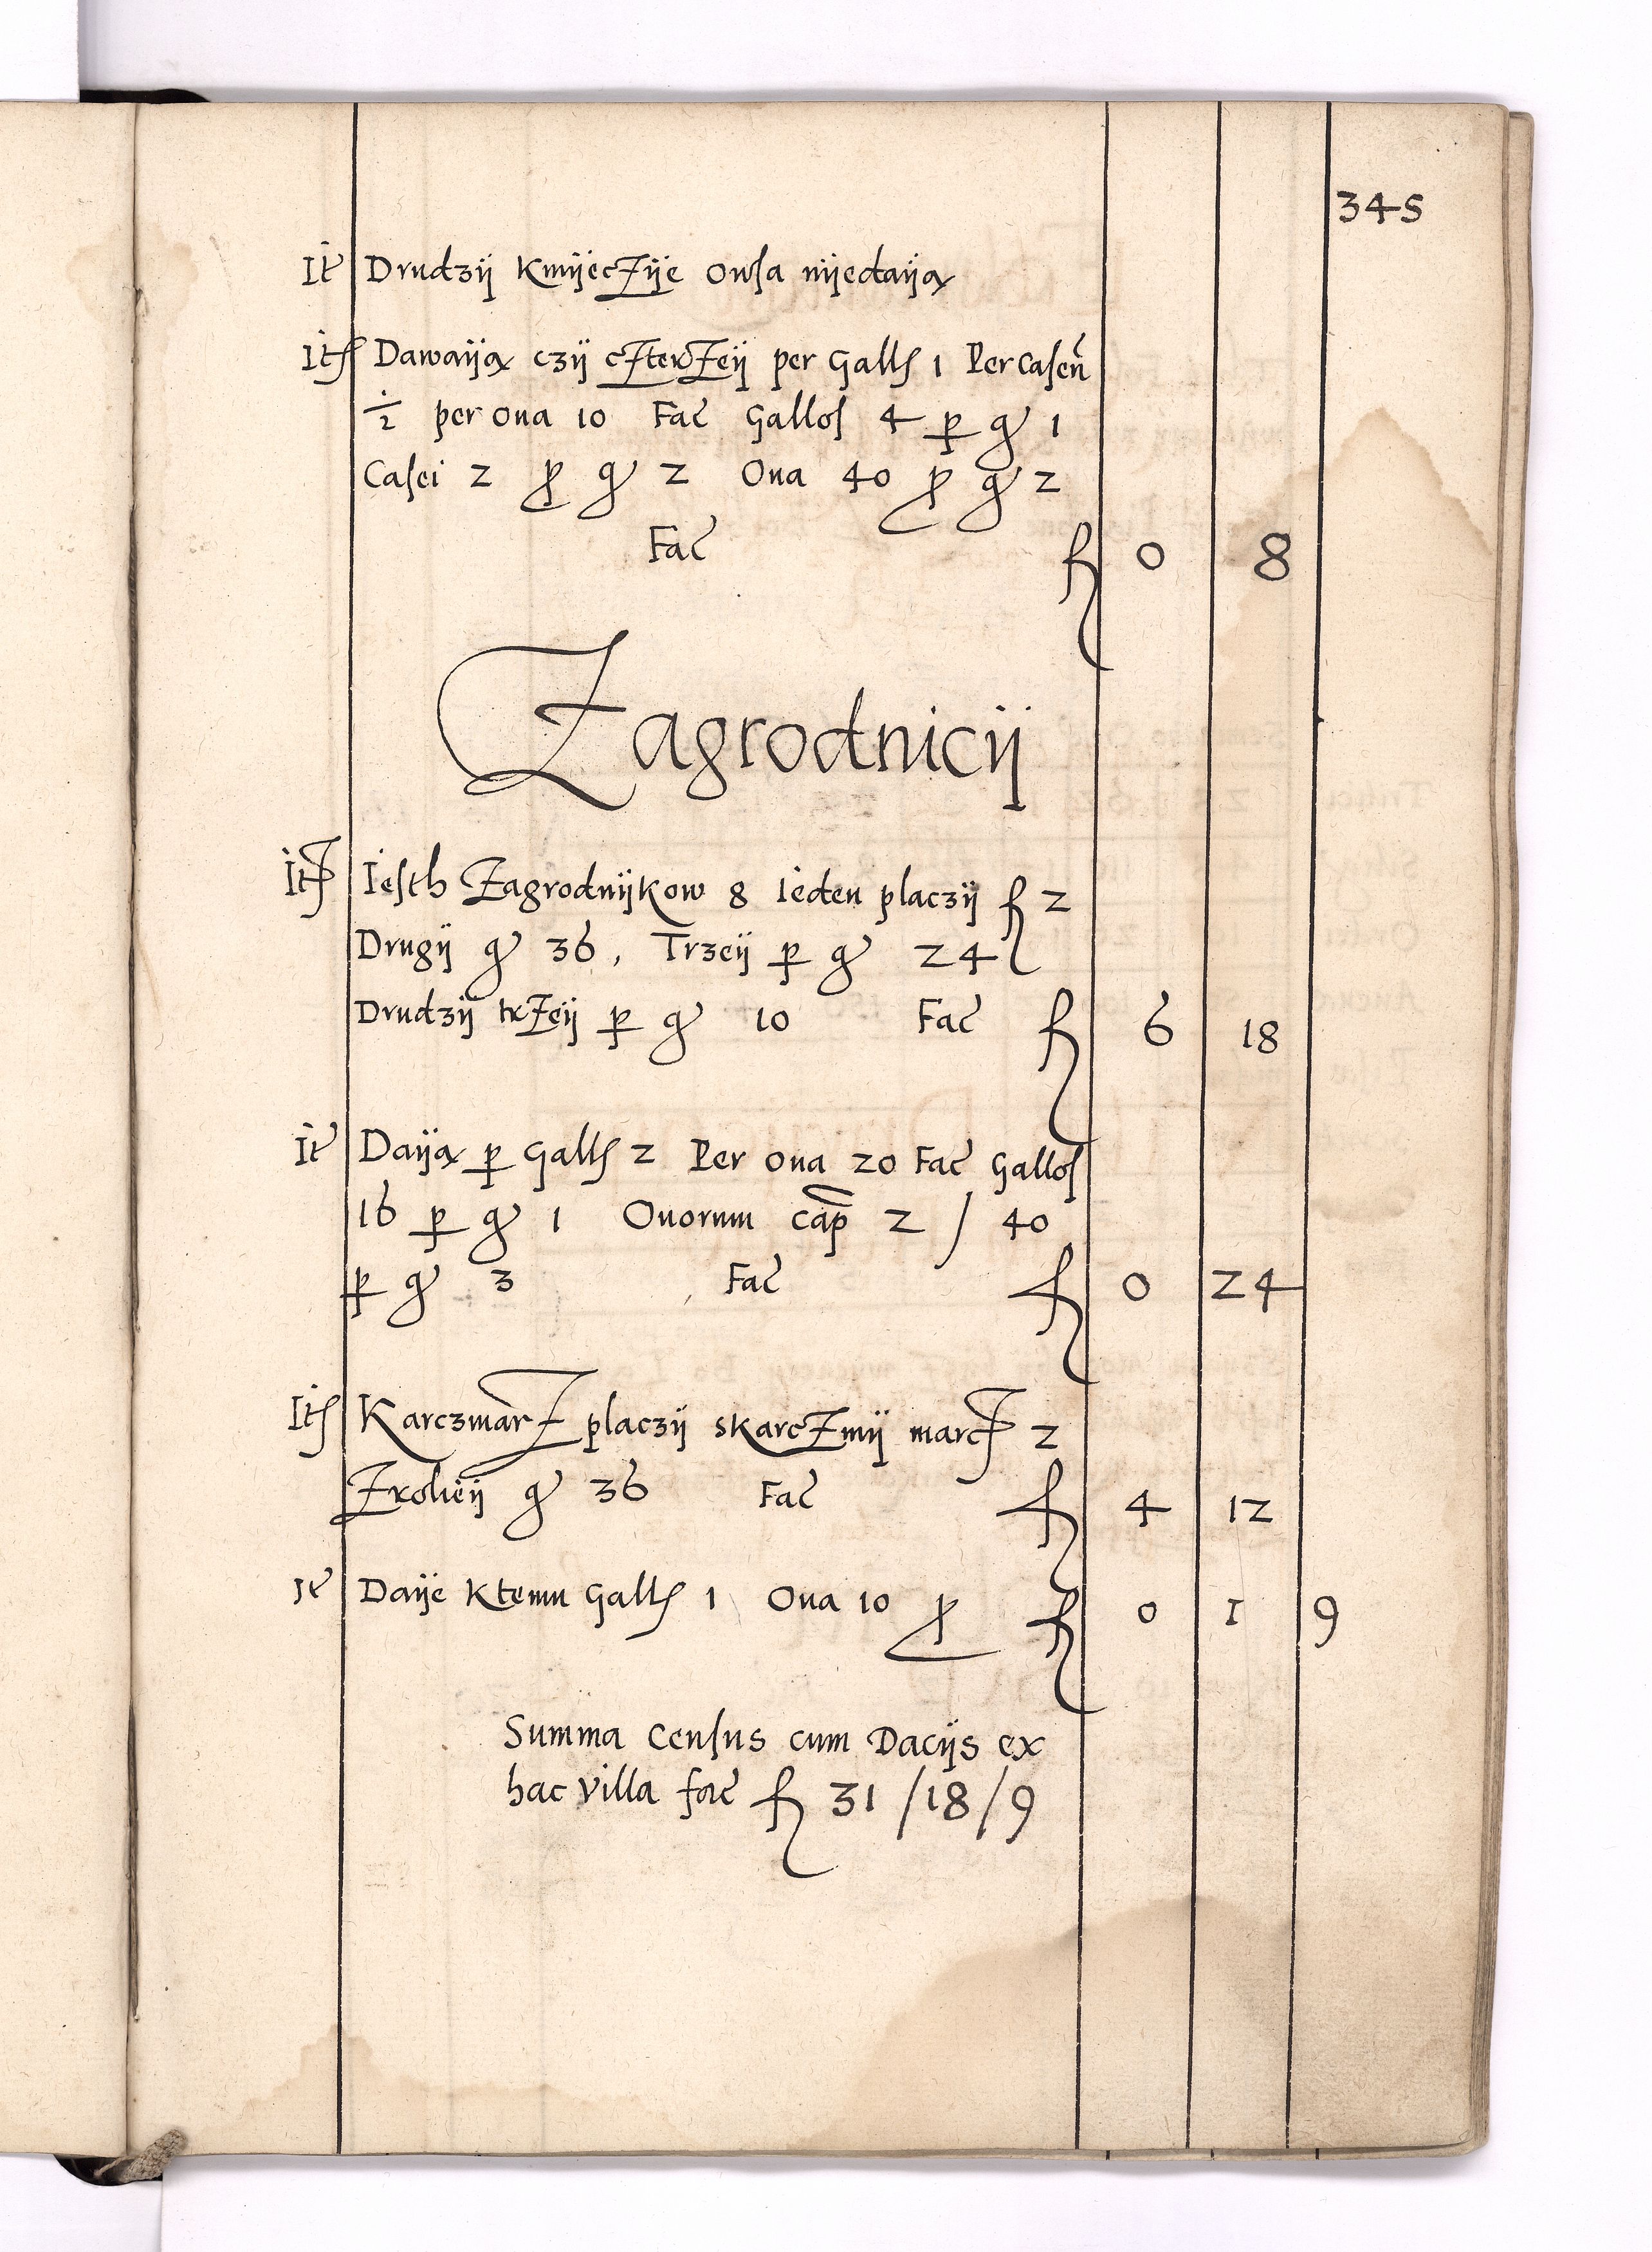 345
It Drudzij Kmijeczije owsa nijedaija
Its Dawaija czij czterzeij per Galls 1 Per Casen
½ per ova 10 Fac Gallos 4 p gr 1
Casei 2 p gr 2 Ova 40 p gr 2
Fac fl 0 8
Zagrodnicij
Its Iesth Zagrodnijkow 8 ieden placzij fl 2
Drugij gr 36, Trzeij p gr 24
Drudzij trzeij p gr 10 Fac fl 6 18
It Daija p Galls 2 Per ova 20 Fac Gallos
16 p gr 1 Ovorum cap 2 / 40
p gr 3 Fac fl 0 24
Its Karczmarz placzij skarczmij marcs 2
Zrolieij gr 36 Fac fl 4 12
It Daije ktemu Galls 1 Ova 10 p fl 0 1 9
Summa Census cum Dacijs ex
hac villa fac fl 31 / 18 / 9